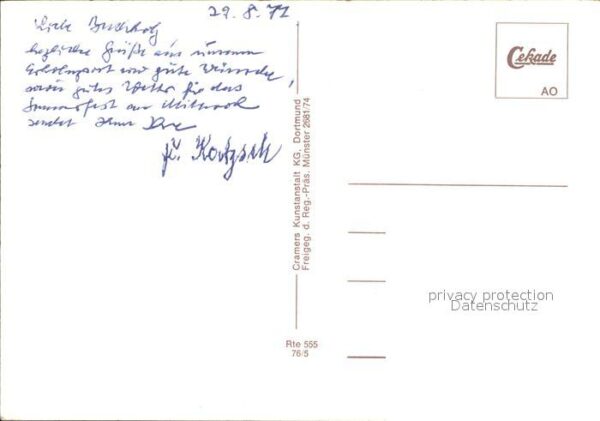 29. 8. 77
herzliche Grüße aus unserem
Erholungsort und gute Wünsche,
sowie gutes Wetter für das
Sommerfest am Mittwoch
sendet Ihnen Ihre
Cekade
AO
Cramers Kunstanstalt KG, Dortmund
Freigeg. d. Reg.-Präs. Münster 2681/74
Rte 555
76/5
privacy protection
Datenschutz